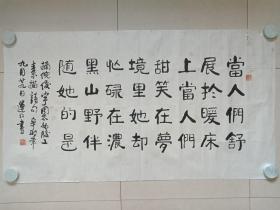 當人們舒
展於暖床
上當人們
甜笑在夢
境里她却
忙碌在濃
黑山野伴
隨她的是
素描詩句辛卯年
書